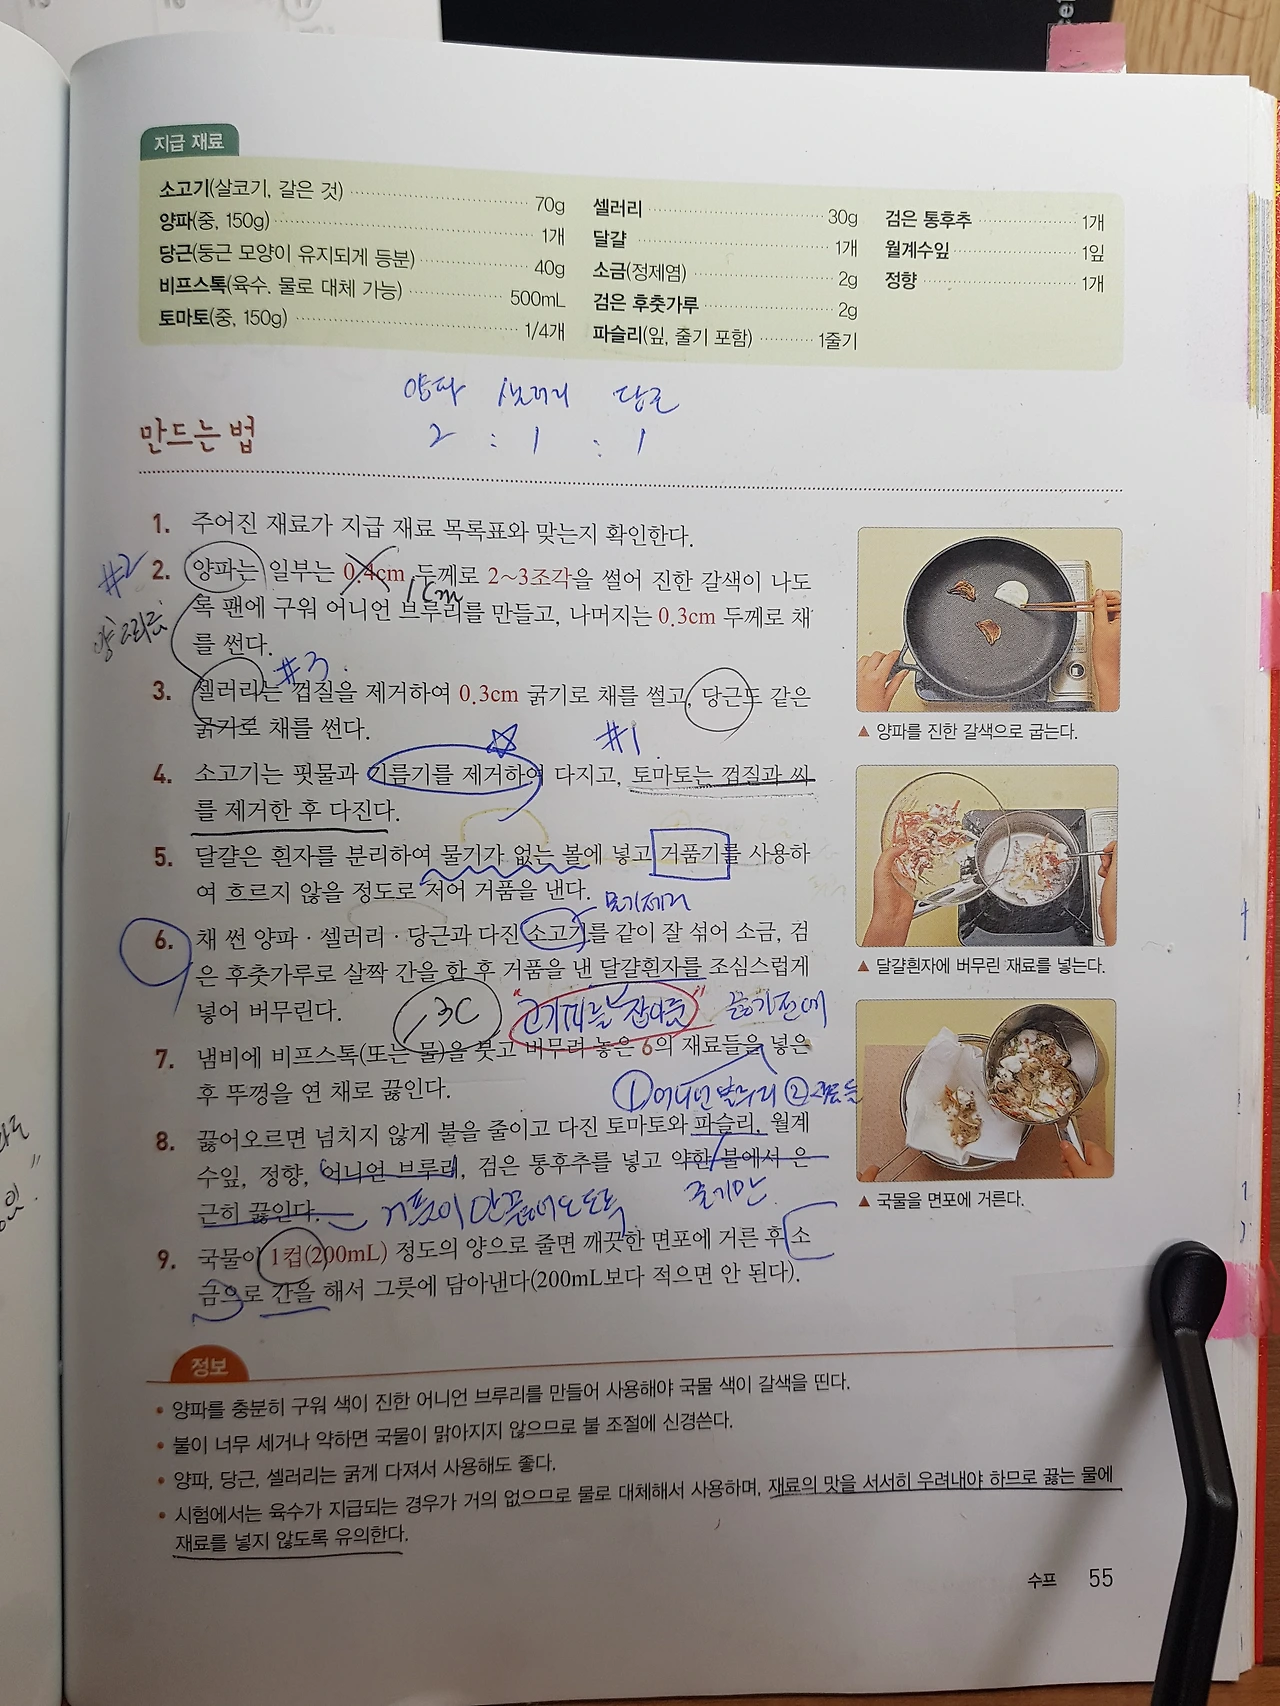 지급 재료
소고기(살코기, 갈은 것) 70g
양파(중, 150g) 1개
당근(둥근 모양이 유지되게 등분) 40g
비프스톡(육수. 물로 대체 가능) 500mL
토마토(중, 150g) 1/4개
셀러리 30g
달걀 1개
소금(정제염) 2g
검은 후춧가루 2g
파슬리(잎, 줄기 포함) 1줄기
검은 통후추 1개
월계수잎 1잎
정향 1개
양파 셀러리 당근
2 : 1 : 1
만드는 법
1. 주어진 재료가 지급 재료 목록표와 맞는지 확인한다.
#2
2. 양파는 일부는 0.4cm 두께로 2~3조각을 썰어 진한 갈색이 나도
1cm
록 팬에 구워 어니언 브루리를 만들고, 나머지는 0.3cm 두께로 채
를 썬다.
#3
3. 셀러리는 껍질을 제거하여 0.3cm 굵기로 채를 썰고, 당근도 같은
굵기로 채를 썬다.
#1
4. 소고기는 핏물과 기름기를 제거하여 다지고, 토마토는 껍질과 씨
를 제거한 후 다진다.
5. 달걀은 흰자를 분리하여 물기가 없는 볼에 넣고 거품기를 사용하
여 흐르지 않을 정도로 저어 거품을 낸다.
물기제거
6. 채 썬 양파 · 셀러리 · 당근과 다진 소고기를 같이 잘 섞어 소금, 검
은 후춧가루로 살짝 간을 한 후 거품을 낸 달걀흰자를 조심스럽게
넣어 버무린다.
3C
끓기전에
7. 냄비에 비프스톡(또는 물)을 붓고 버무려 놓은 6의 재료들을 넣은
후 뚜껑을 연 채로 끓인다.
① 어니언 브루리 ②
8. 끓어오르면 넘치지 않게 불을 줄이고 다진 토마토와 파슬리, 월계
수잎, 정향, 어니언 브루리, 검은 통후추를 넣고 약한 불에서 은
줄기만
근히 끓인다.
9. 국물이 1컵(200mL) 정도의 양으로 줄면 깨끗한 면포에 거른 후 소
금으로 간을 해서 그릇에 담아낸다(200mL보다 적으면 안 된다).
▲ 양파를 진한 갈색으로 굽는다.
▲ 달걀흰자에 버무린 재료를 넣는다.
▲ 국물을 면포에 거른다.
정보
• 양파를 충분히 구워 색이 진한 어니언 브루리를 만들어 사용해야 국물 색이 갈색을 띤다.
• 불이 너무 세거나 약하면 국물이 맑아지지 않으므로 불 조절에 신경쓴다.
• 양파, 당근, 셀러리는 굵게 다져서 사용해도 좋다.
• 시험에서는 육수가 지급되는 경우가 거의 없으므로 물로 대체해서 사용하며, 재료의 맛을 서서히 우려내야 하므로 끓는 물에
재료를 넣지 않도록 유의한다.
수프 55